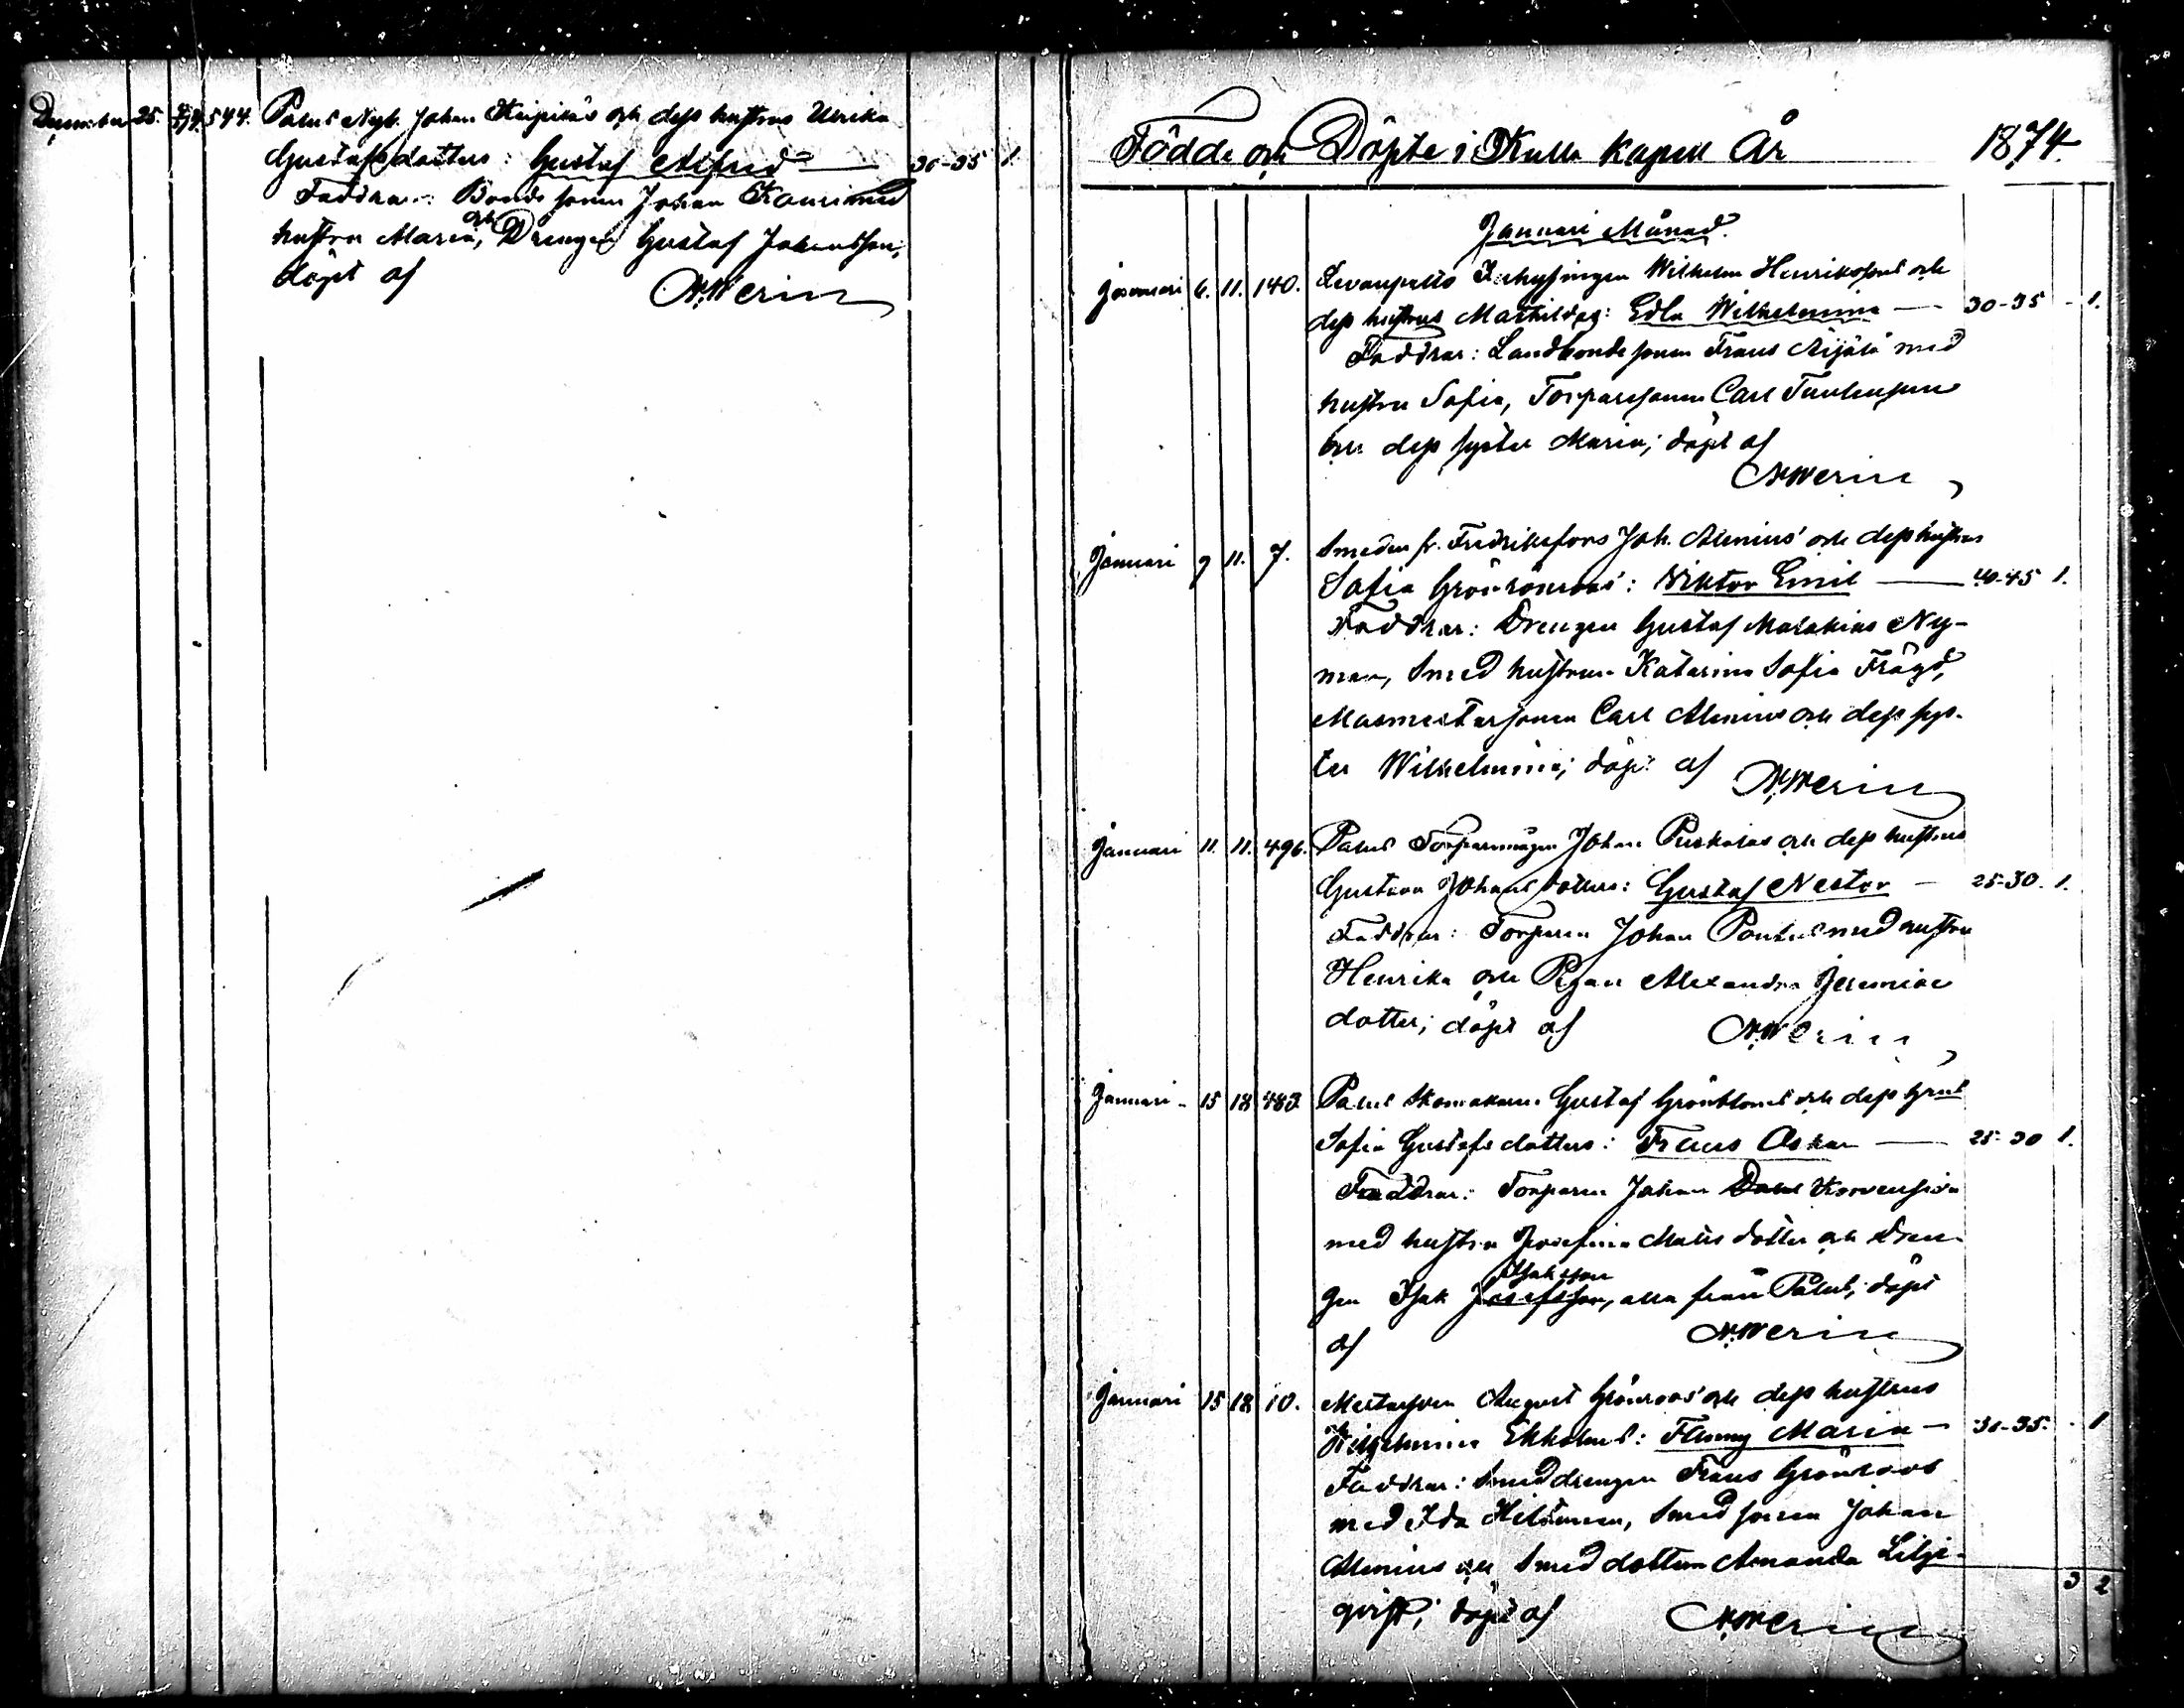 December 25. 544. Palus Nyb. Johan och dess hustrus Ulrika
Gustafsdotters: Gustaf Alfred — 30-35 1.
Faddrar: Bondesonen Johan Kauri med
hustru Maria, och Drengen Gustaf Johansson;
döpt af
N. Werin
Födde och Döpte i Kulla kapell År 1874.
Januari Månad.
Januari 6. 11. 140. Levanpelto Inhysingen Wilhelm Henrikssons och
dess hustrus Mathildas: Edla Wilhelmina — 30-35 - 1.
Faddrar: Landbondesonen Frans Äijälä med
hustru Sofia, Torparesonen Carl
och dess syster Maria; döpt af
N. Werin
Januari 9 11. 7. Smeden fr. Fredriksfors Joh. Alenius' och dess hustrus
Sofia Grönroos': Viktor Emil — 40-45 1.
Faddrar: Drengen Gustaf Malakias Ny-
man, Smedhustrun Katarina Sofia Frägd,
Masmästarsonen Carl Alenius och dess sys-
ter Wilhelmina; döpt af N. Werin
Januari 11. 11. 496. Palus Torparmågen Johan Puskalas och dess hustrus
Gustava Johansdotters: Gustaf Nestor — 25-30. 1.
Faddrar: Torparen Johan Pontus med hustru
Henrika och Pigan Alexandra Jeremiae
dotter; döpt af N. Werin
Januari - 15 18 483 Palus Skomakaren Gustaf Grönbloms och dess hustrus
Sofia Gustafsdotters: Frans Oskar — 25-30 1.
Faddrar: Torparen Johan Korvensivu
med hustru Josefina Matsdotter och Dren-
gen Isak Josefsson Isaksson, alla från Palus; döpt
af N. Werin
Januari 15 18 10. Mästarsven August Grönroos' och dess hustrus
Wilhelmina Ekholms: Fanny Maria — 30-35. - 1
Faddrar: Smeddrengen Frans Grönroos
med Ida Hildänen, Smedsonen Johan
Alenius och Smeddottern Amanda Lilje-
qvist; döpt af N. Werin
3 2